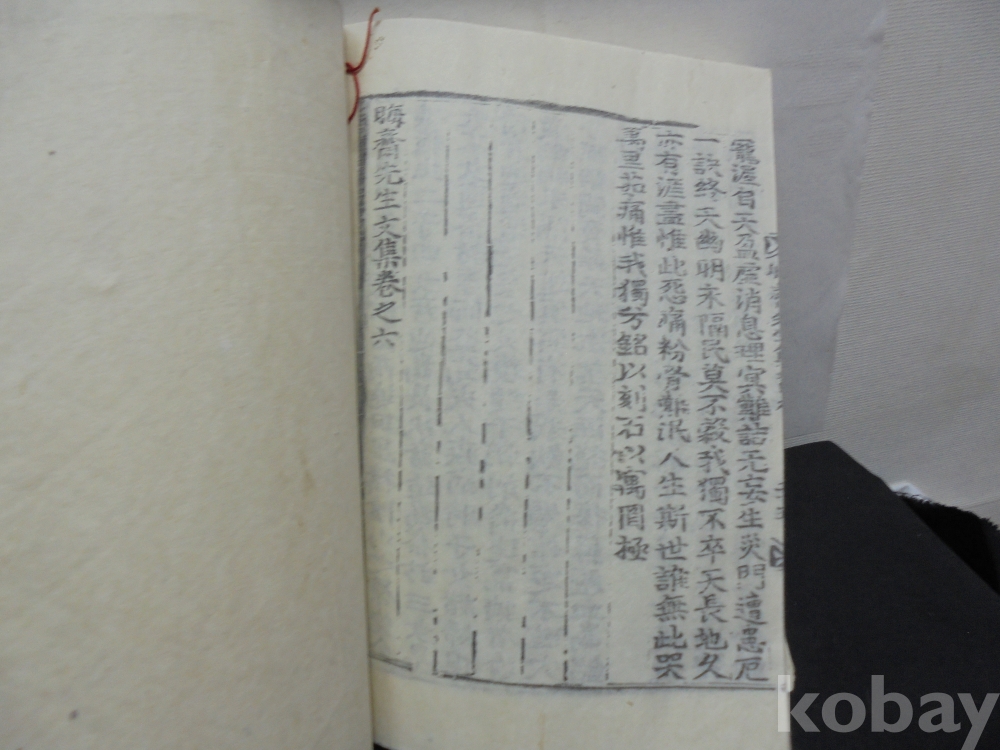 寵渥自天盈虛消息理宜難詰无妄生災門遭愚厄
一訣終天幽明永隔民莫不穀我獨不卒天長地久
亦有涯盡惟此怨痛粉骨難泯人生斯世誰無此哭
萬里茹痛惟我獨兮銘以刻石以寓罔極
晦齋先生文集卷之六
kobay